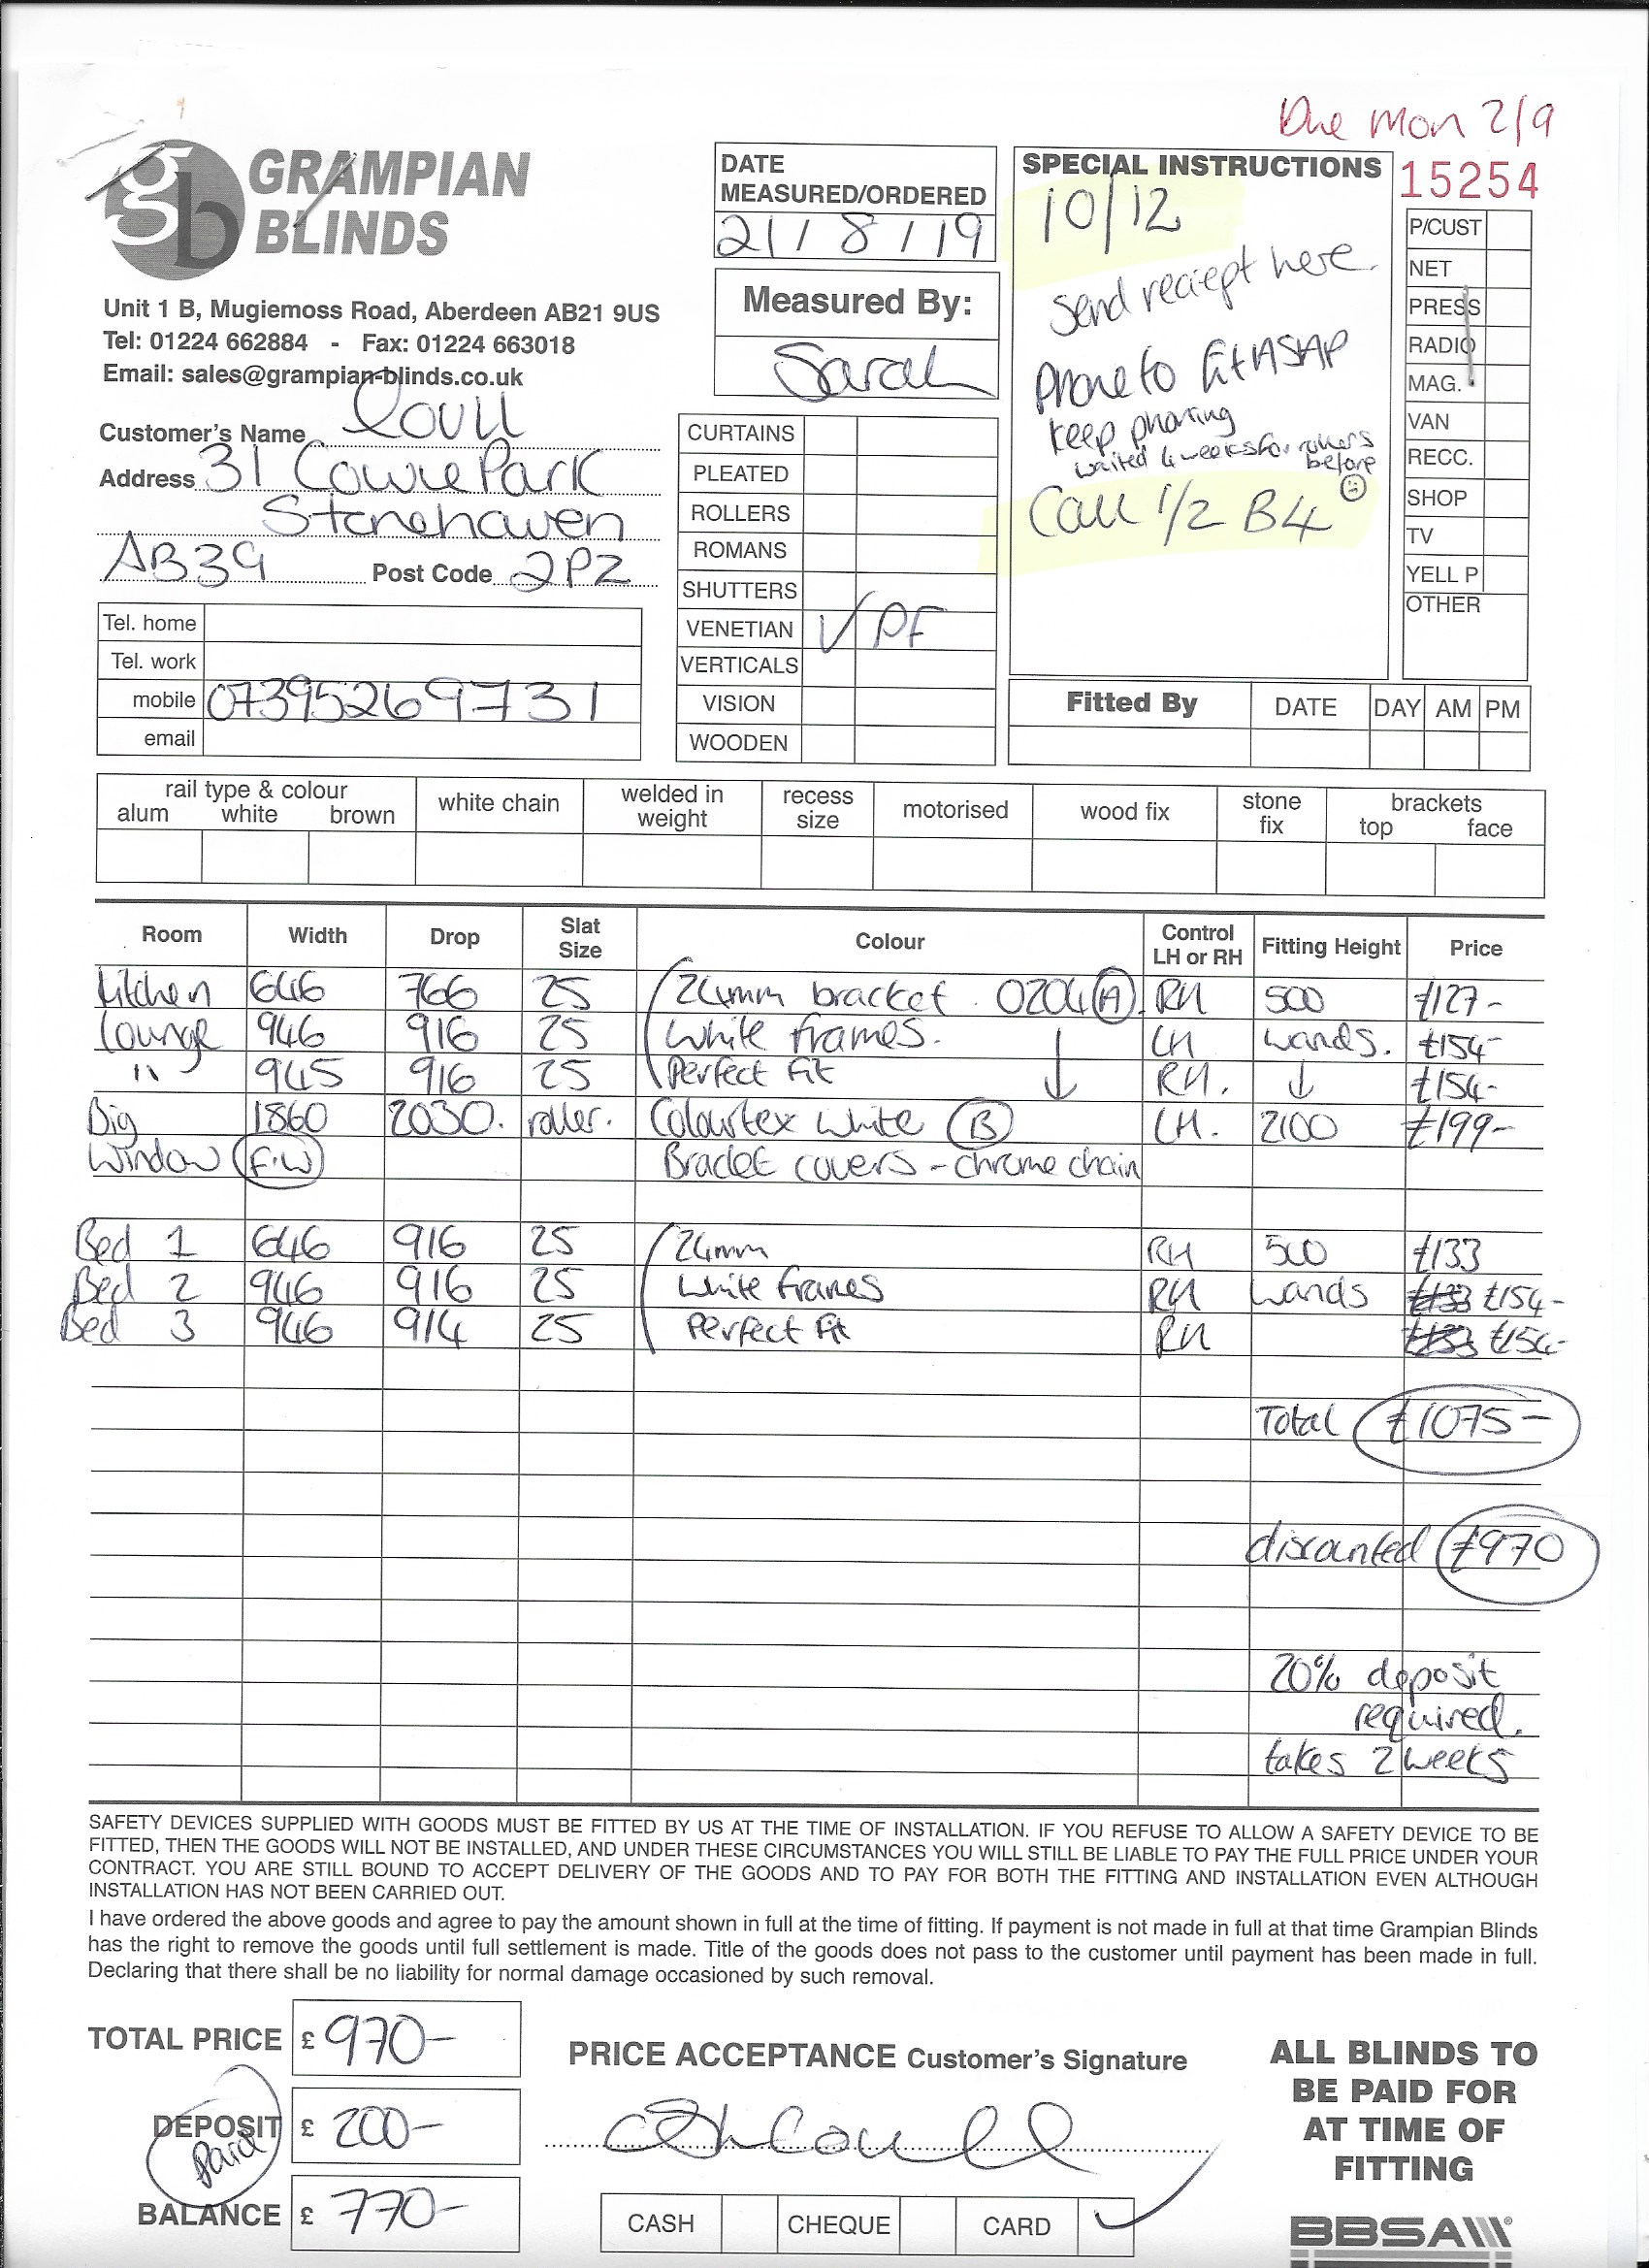 Due Mon 2/9
GRAMPIAN
BLINDS
Unit 1 B, Mugiemoss Road, Aberdeen AB21 9US
Tel: 01224 662884 - Fax: 01224 663018
Email: sales@grampian-blinds.co.uk
Customer's Name Coull
Address 31 Cowie Park
Stonehaven
AB39 Post Code 2PZ
Tel. home
Tel. work
mobile 07395269731
email
DATE
MEASURED/ORDERED
21 / 8 / 19
Measured By:
Sarah
CURTAINS
PLEATED
ROLLERS
ROMANS
SHUTTERS
VENETIAN ✓ PF
VERTICALS
VISION
WOODEN
SPECIAL INSTRUCTIONS
10/12
Send reciept here.
Phone to fit ASAP
keep phoning
waited 4 weeks for rollers
before
Call 1/2 B4
15254
P/CUST
NET
PRESS
RADIO
MAG.
VAN
RECC.
SHOP
TV
YELL P
OTHER
Fitted By DATE DAY AM PM
rail type & colour
alum white brown
white chain
welded in
weight
recess
size
motorised
wood fix
stone
fix
brackets
top face
Room Width Drop Slat Size Colour Control LH or RH Fitting Height Price
kitchen 646 766 25 24mm bracket. 0204 A RH 500 £127-
Lounge 946 916 25 White frames. LH wands. £154-
" 945 916 25 Perfect Fit RH. £154-
Big 1860 2030. roller. Colourtex White B LH. 2100 £199-
Window F.W Bracket covers - chrome chain
Bed 1 646 916 25 24mm RH 500 £133
Bed 2 946 916 25 White frames RH wands £133 £154-
Bed 3 946 914 25 Perfect Fit RH £133 £154-
Total £1075-
discounted £970
20% deposit
required.
takes 2 weeks
SAFETY DEVICES SUPPLIED WITH GOODS MUST BE FITTED BY US AT THE TIME OF INSTALLATION. IF YOU REFUSE TO ALLOW A SAFETY DEVICE TO BE
FITTED, THEN THE GOODS WILL NOT BE INSTALLED, AND UNDER THESE CIRCUMSTANCES YOU WILL STILL BE LIABLE TO PAY THE FULL PRICE UNDER YOUR
CONTRACT. YOU ARE STILL BOUND TO ACCEPT DELIVERY OF THE GOODS AND TO PAY FOR BOTH THE FITTING AND INSTALLATION EVEN ALTHOUGH
INSTALLATION HAS NOT BEEN CARRIED OUT.
I have ordered the above goods and agree to pay the amount shown in full at the time of fitting. If payment is not made in full at that time Grampian Blinds
has the right to remove the goods until full settlement is made. Title of the goods does not pass to the customer until payment has been made in full.
Declaring that there shall be no liability for normal damage occasioned by such removal.
TOTAL PRICE £ 970-
DEPOSIT £ 200-
Paid
BALANCE £ 770-
PRICE ACCEPTANCE Customer's Signature
CASH CHEQUE CARD ✓
ALL BLINDS TO
BE PAID FOR
AT TIME OF
FITTING
BBSA